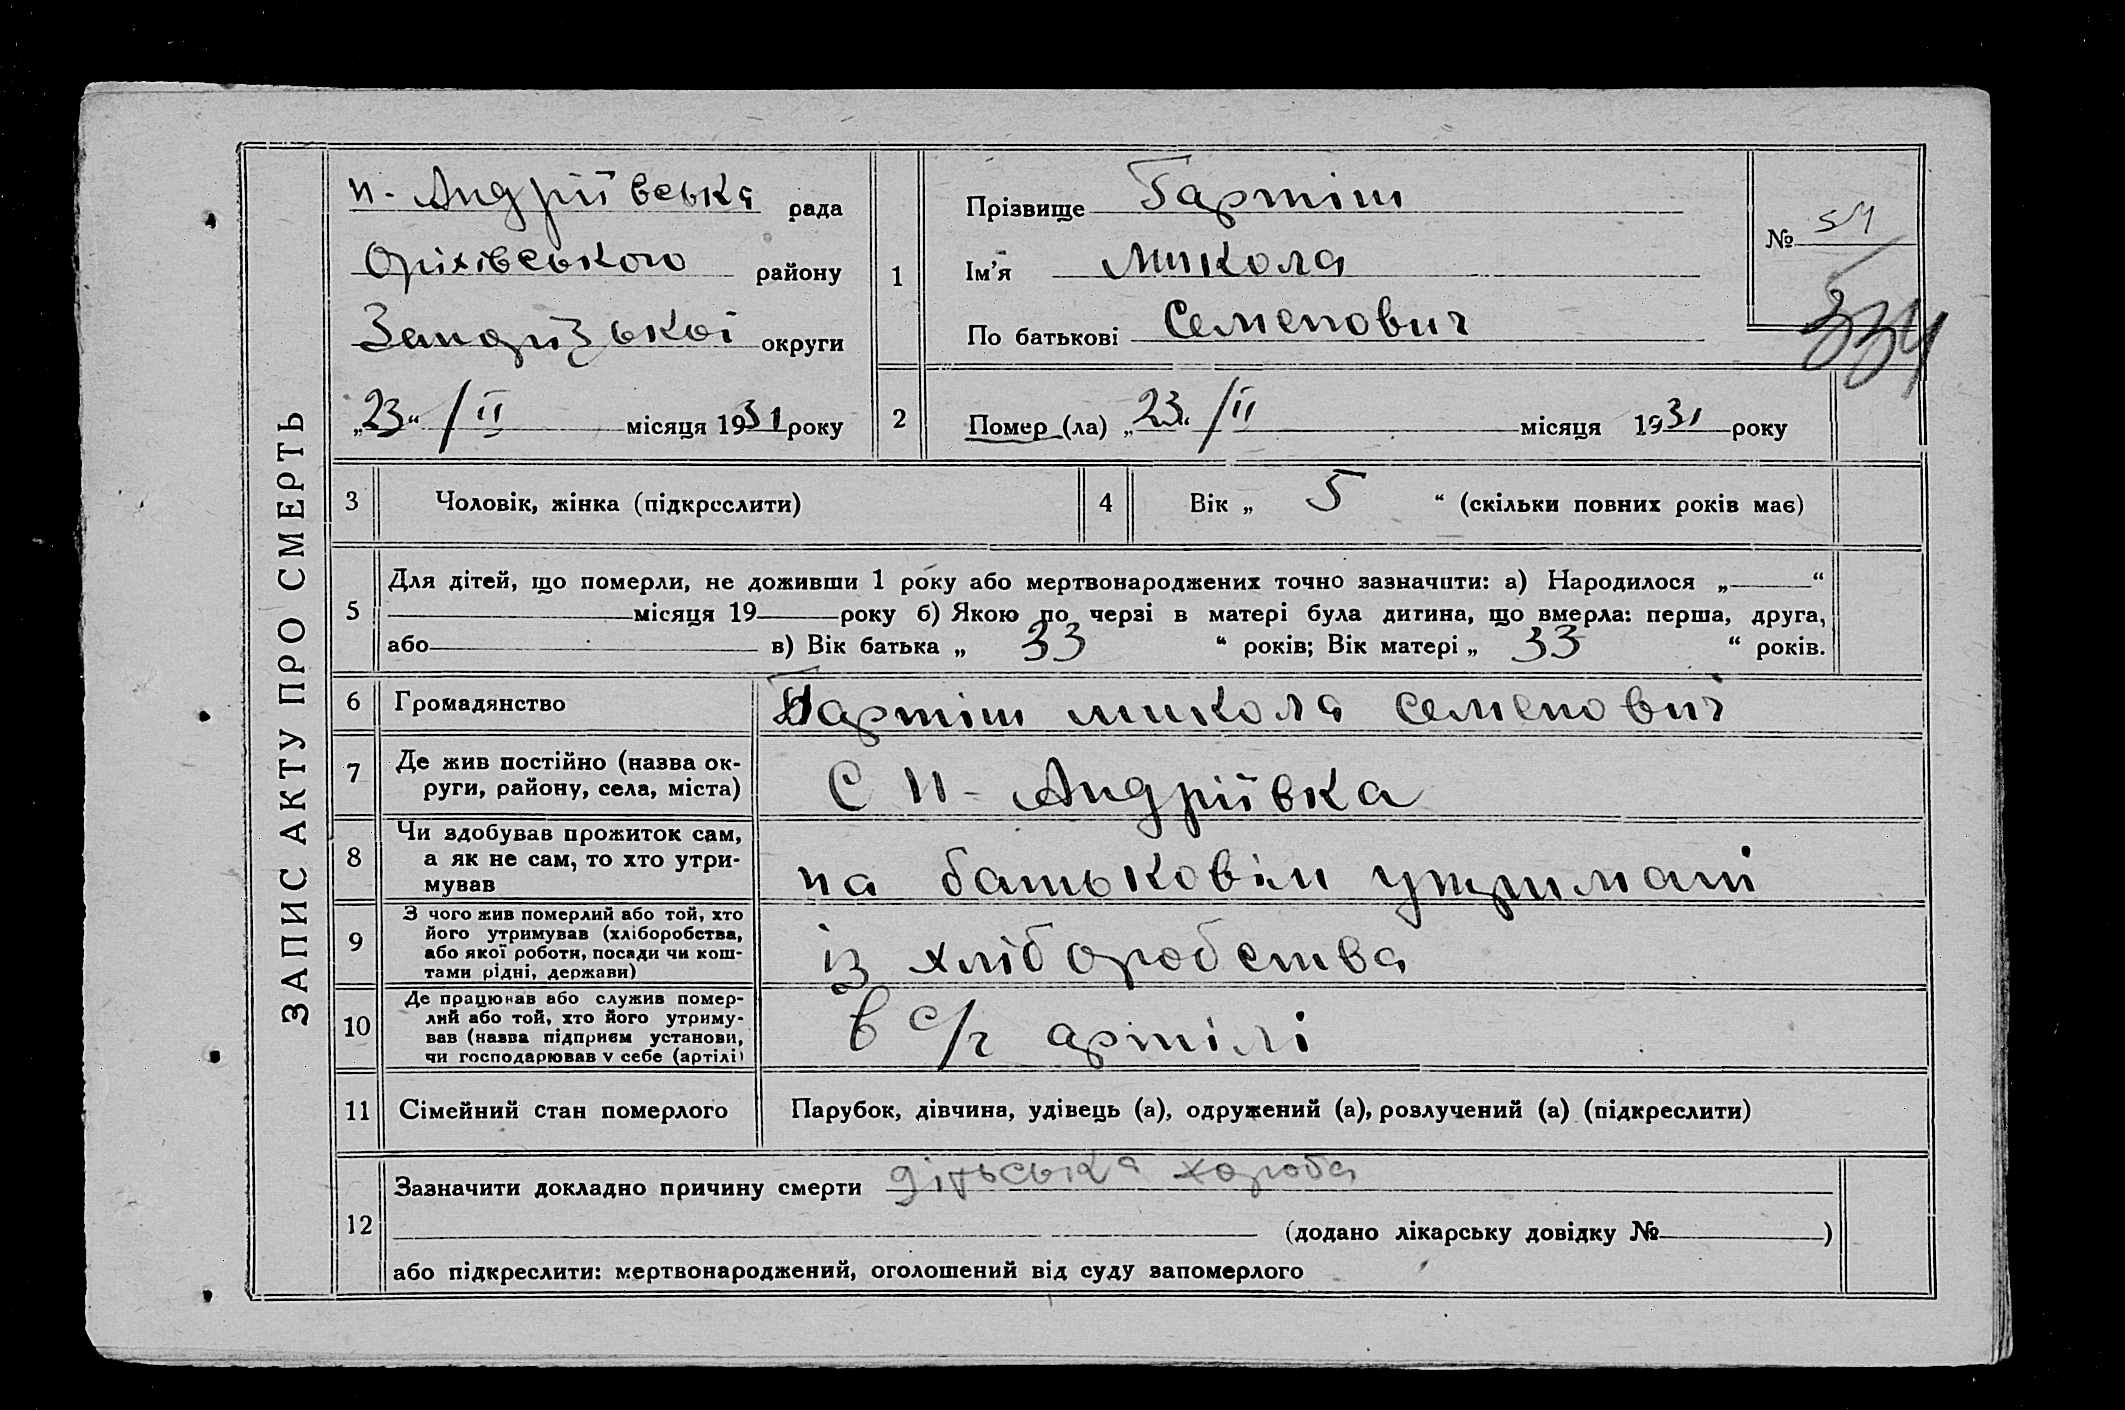 ЗАПИС АКТУ ПРО СМЕРТЬ
Н-Андріївська рада
Оріхівського району
округи
„23“ / II місяця 1931 року
1
Прізвище Гартіш
Ім'я Микола
По батькові Семенович
№ 54
334
2
Помер (ла) „23“ / II місяця 1931 року
3 Чоловік, жінка (підкреслити)
4 Вік „ 5 “ (скільки повних років має)
5
Для дітей, що померли, не доживши 1 року або мертвонароджених точно зазначити: а) Народилося „ “
місяця 19 року б) Якою по черзі в матері була дитина, що вмерла: перша, друга,
або в) Вік батька „ 33 “ років; Вік матері „ 33 “ років.
6 Громадянство Гартіш Микола Семенович
7 Де жив постійно (назва ок-
руги, району, села, міста)
С Н-Андріївка
8 Чи здобував прожиток сам,
а як не сам, то хто утри-
мував
на батьковім утримані
9 З чого жив померлий або той, хто
його утримував (хліборобства,
або якої роботи, посади чи кош-
тами рідні, держави)
із хліборобства
10 Де працював або служив помер-
лий або той, хто його утриму-
вав (назва підприєм установи,
чи господарював у себе (артілі)
в с/г артілі
11 Сімейний стан померлого Парубок, дівчина, удівець (а), одружений (а), розлучений (а) (підкреслити)
12
Зазначити докладно причину смерти дітьська хороба
(додано лікарську довідку № )
або підкреслити: мертвонароджений, оголошений від суду запомерлого